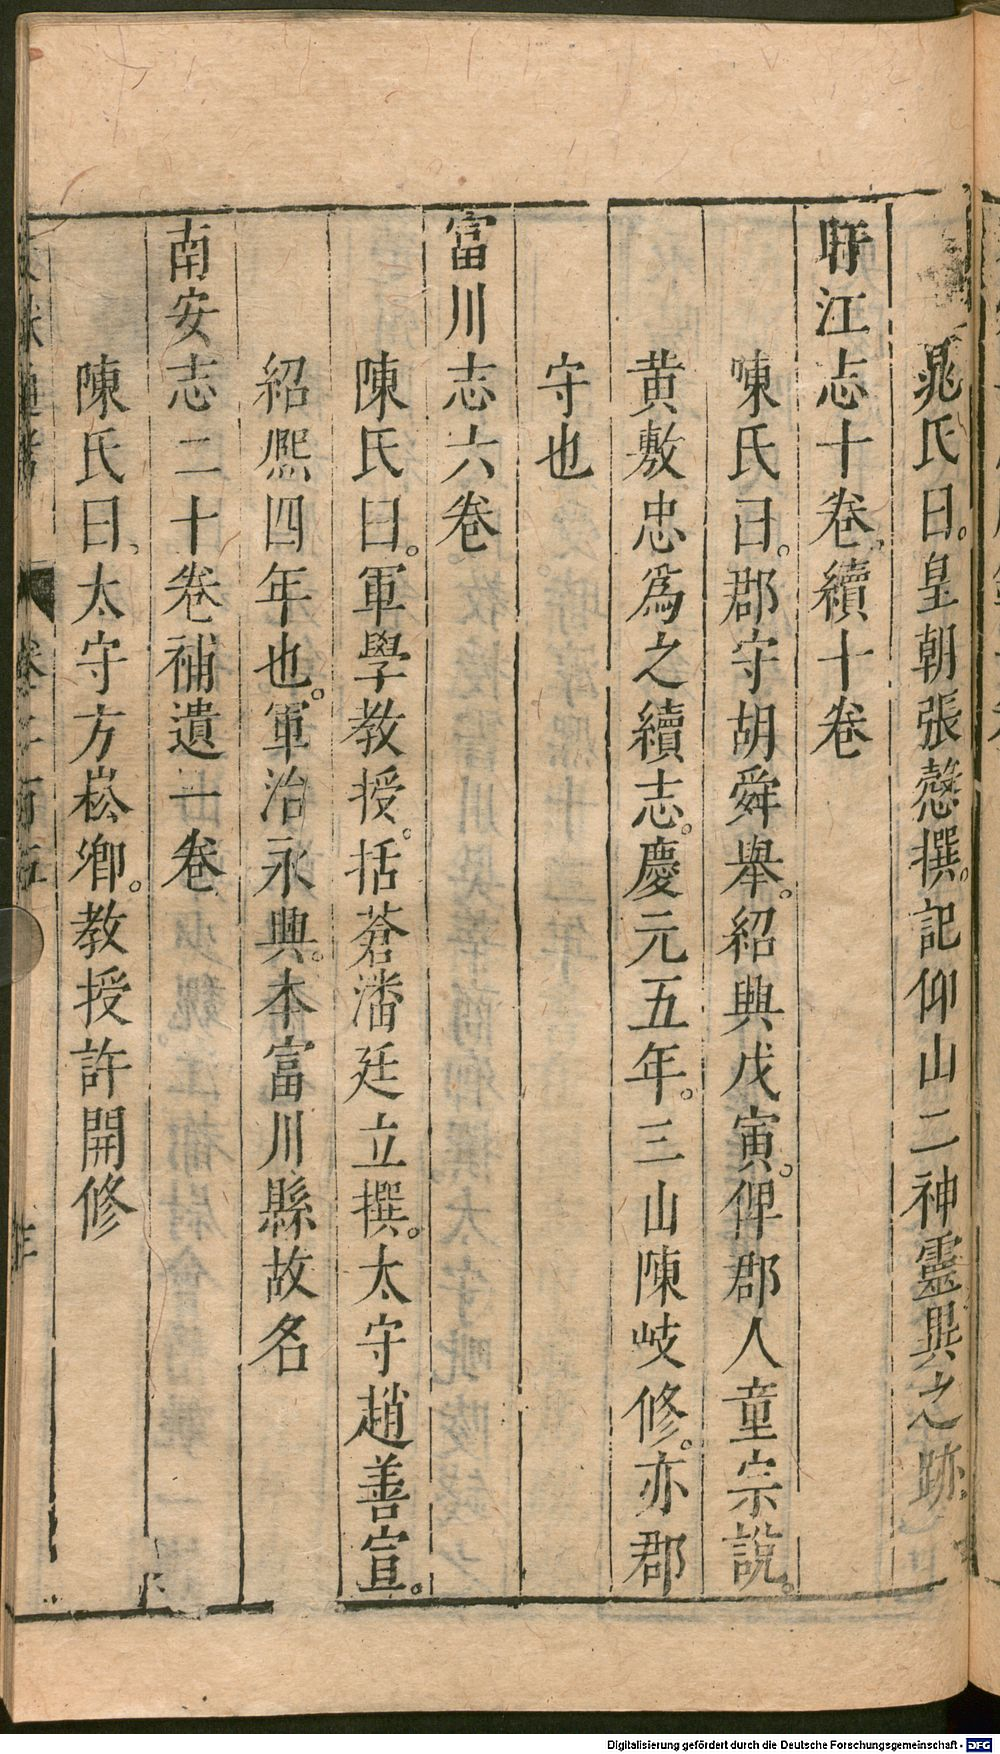 晁氏曰。皇朝張愨撰。記仰山二神靈異之跡
盱江志十卷續十卷
陳氏曰。郡守胡舜舉。紹興戊寅。俾郡人童宗說。
黄敷忠爲之續志。慶元五年。三山陳岐修。亦郡
守也
富川志六卷
陳氏曰。軍學教授。括蒼潘廷立撰。太守趙善宣。
紹熈四年也。軍治永興。本富川縣故名
南安志二十卷補遺一卷
陳氏曰、太守方崧卿。教授許開修
Digitalisierung gefördert durch die Deutsche Forschungsgemeinschaft - DFG